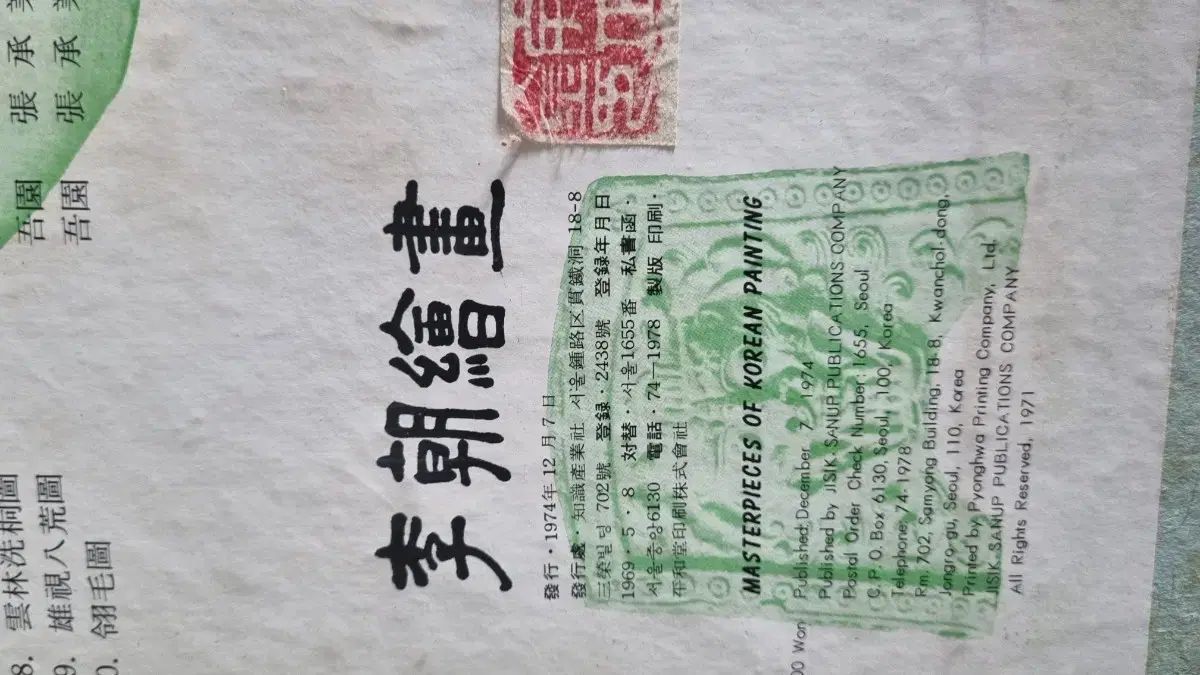 8. 雲林洗桐圖 吾園 張承
9. 雄視八荒圖 吾園 張承
0. 翎毛圖
李朝繪畫
發行・1974年 12月 7日
發行處・知識產業社 서울鍾路区貫鐵洞 18-8
三榮빌딩 702號 登録・2438號 登録年月日
1969・5・8 対替・서울1655番 私書函・
서울중앙6130 電話・74—1978 製版 印刷・
平和堂印刷株式會社
MASTERPIECES OF KOREAN PAINTING
00 Won
Published; December 7 1974
Published by JISIK SANUP PUBLICATIONS COMPANY
Postal Order Check Number; 1655, Seoul
C. P. O. Box 6130, Seoul, 100, Korea
Telephone; 74-1978
Rm. 702, Samyong Building, 18-8, Kwanchol-dong,
Jongro-gu, Seoul, 110, Korea
Printed by Pyonghwa Printing Company, Ltd.
JISIK SANUP PUBLICATIONS COMPANY
All Rights Reserved, 1971